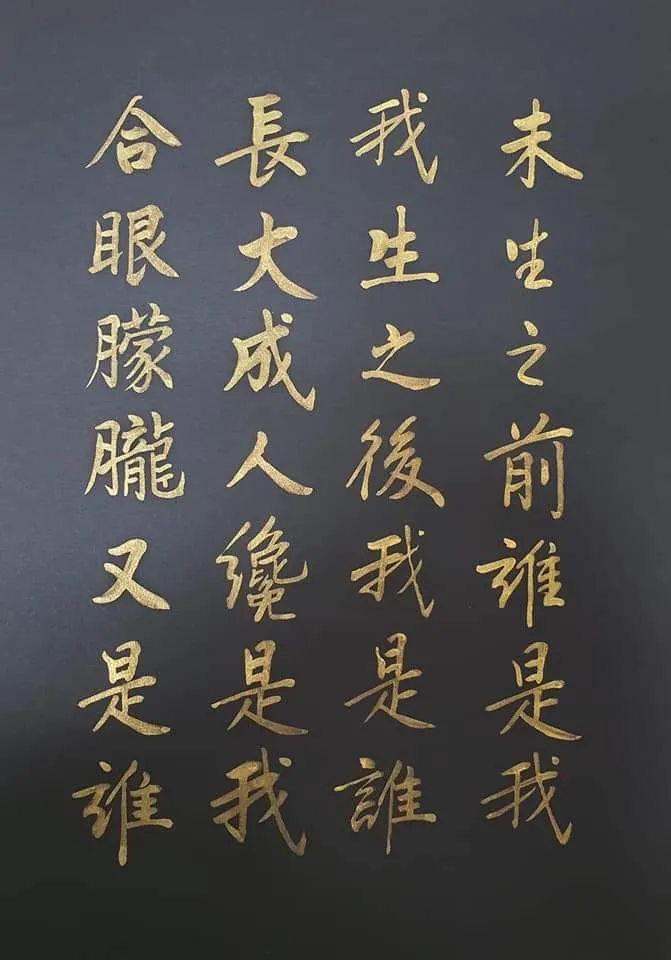 未生之前誰是我
我生之後我是誰
長大成人纔是我
合眼朦朧又是誰